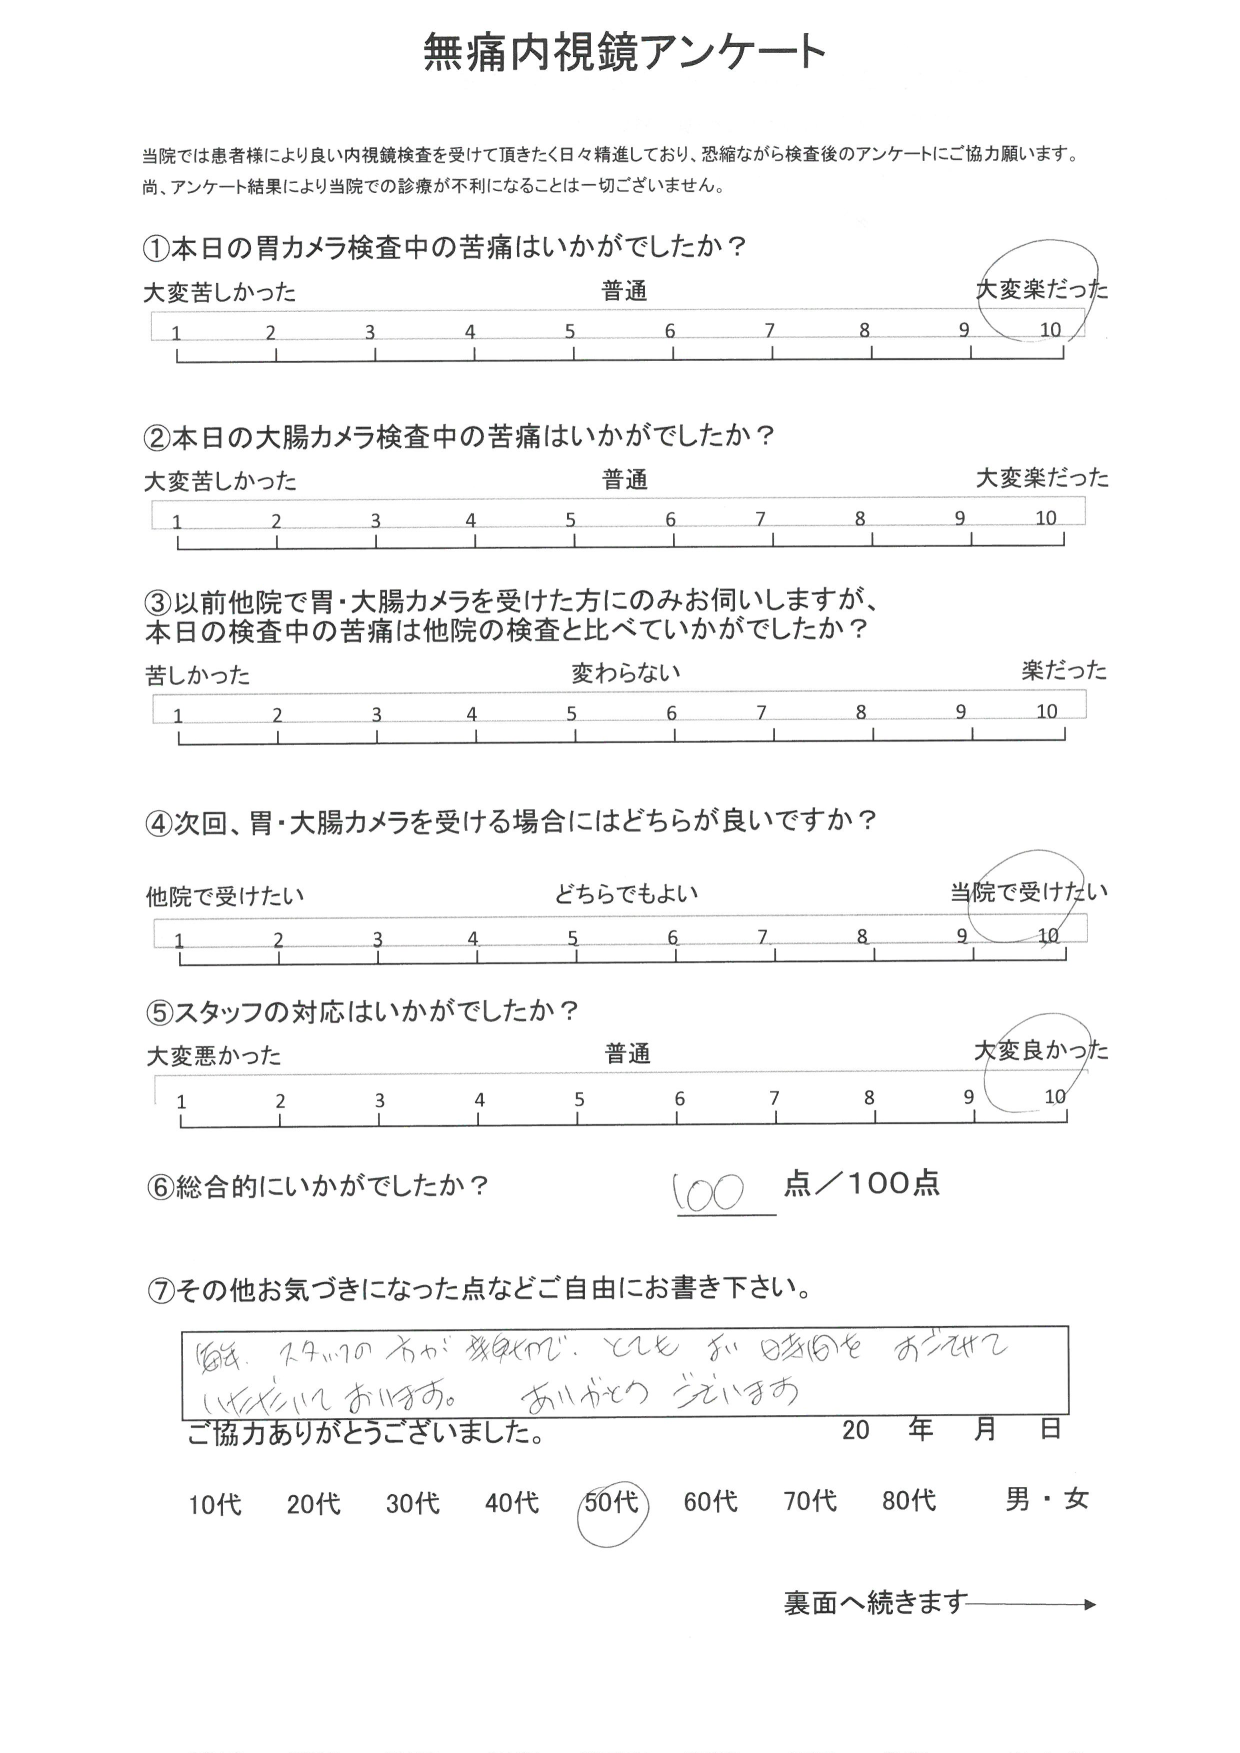 無痛内視鏡アンケート
当院では患者様により良い内視鏡検査を受けて頂きたく日々精進しており、恐縮ながら検査後のアンケートにご協力願います。
尚、アンケート結果により当院での診療が不利になることは一切ございません。
①本日の胃カメラ検査中の苦痛はいかがでしたか？
大変苦しかった 普通 大変楽だった
1 2 3 4 5 6 7 8 9 10
②本日の大腸カメラ検査中の苦痛はいかがでしたか？
大変苦しかった 普通 大変楽だった
1 2 3 4 5 6 7 8 9 10
③以前他院で胃・大腸カメラを受けた方にのみお伺いしますが、
本日の検査中の苦痛は他院の検査と比べていかがでしたか？
苦しかった 変わらない 楽だった
1 2 3 4 5 6 7 8 9 10
④次回、胃・大腸カメラを受ける場合にはどちらが良いですか？
他院で受けたい どちらでもよい 当院で受けたい
1 2 3 4 5 6 7 8 9 10
⑤スタッフの対応はいかがでしたか？
大変悪かった 普通 大変良かった
1 2 3 4 5 6 7 8 9 10
⑥総合的にいかがでしたか？ 100 点／100点
⑦その他お気づきになった点などご自由にお書き下さい。
スタッフの方が 親切で、とても 良い 時間を すごさせて
いただいて おります。 ありがとう ございます
ご協力ありがとうございました。 20 年 月 日
10代 20代 30代 40代 50代 60代 70代 80代 男・女
裏面へ続きます